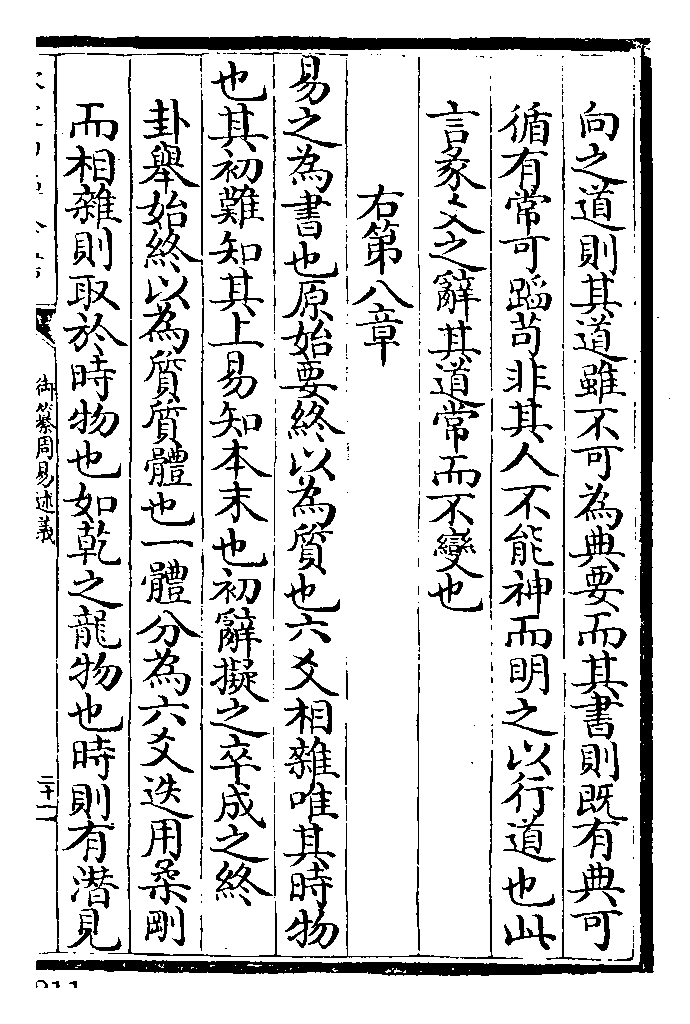 向之道則其道雖不可為典要而其書則既有典可
循有常可蹈苟非其人不能神而明之以行道也此
言彖爻之辭其道常而不變也
右第八章
易之為書也原始要終以為質也六爻相雜唯其時物
也其初難知其上易知本末也初辭擬之卒成之終
卦舉始終以為質質體也一體分為六爻迭用柔剛
而相雜則取於時物也如乾之龍物也時則有潛見
御纂周易述義
二十一